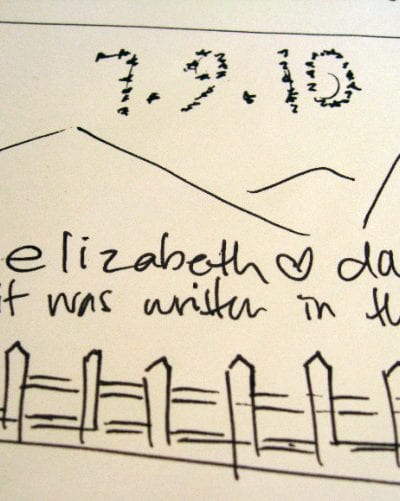 7.9.10
elizabeth ♡ da
it was written in th